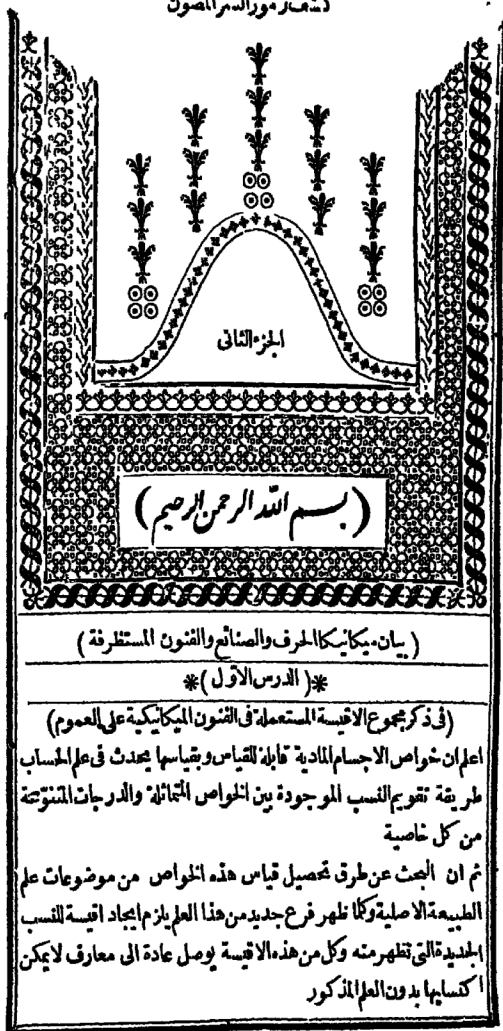 كشف رموز السر المصون
الجزء الثانى
(بسم الله الرحمن الرحيم)
(بيان ميكانيكا الحرف والصنائع والفنون المستظرفة)
*(الدرس الاول)*
(فى ذكر مجموع الاقيسة المستعملة فى الفنون الميكانيكية على العموم)
اعلم ان خواص الاجسام المادية قابلة للقياس وبقياسها يحدث فى علم الحساب
طريقة تقويم النسب الموجودة بين الخواص المتماثلة والدرجات المتنوعة
من كل خاصية
ثم ان البحث عن طرق تحصيل قياس هذه الخواص من موضوعات علم
الطبيعة الاصلية وكلما ظهر فرع جديد من هذا العلم يلزم ايجاد اقيسة للنسب
الجديدة التى تظهر منه وكل من هذه الاقيسة يوصل عادة الى معارف لا يمكن
اكتسابها بدون العلم المذكور